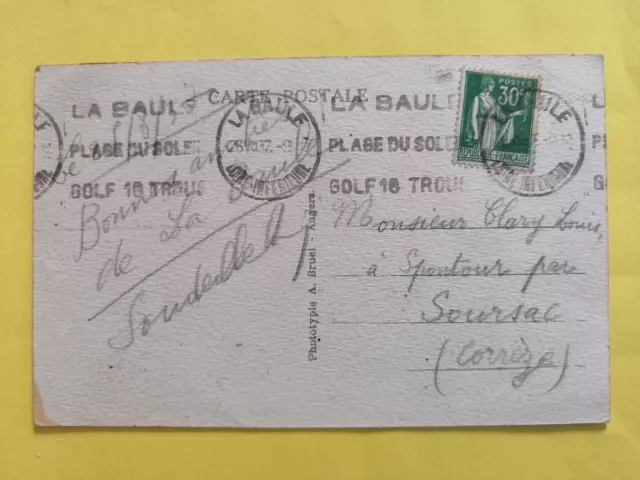 CARTE POSTALE
LA BAULE
PLAGE DU SOLEI
GOLF 18 TROUS
LA BAULE
LOIRE INFERIEURE
LA BAULE
PLAGE DU SOLEI
GOLF 18 TROUS
POSTES
30c
REPUBLIQUE FRANÇAISE
Bonne
de La Baule
Soudeillette
Phototypie A. Bruel - Angers
Monsieur Clary Louis,
à Spontour par
Soursac
(Corrèze)